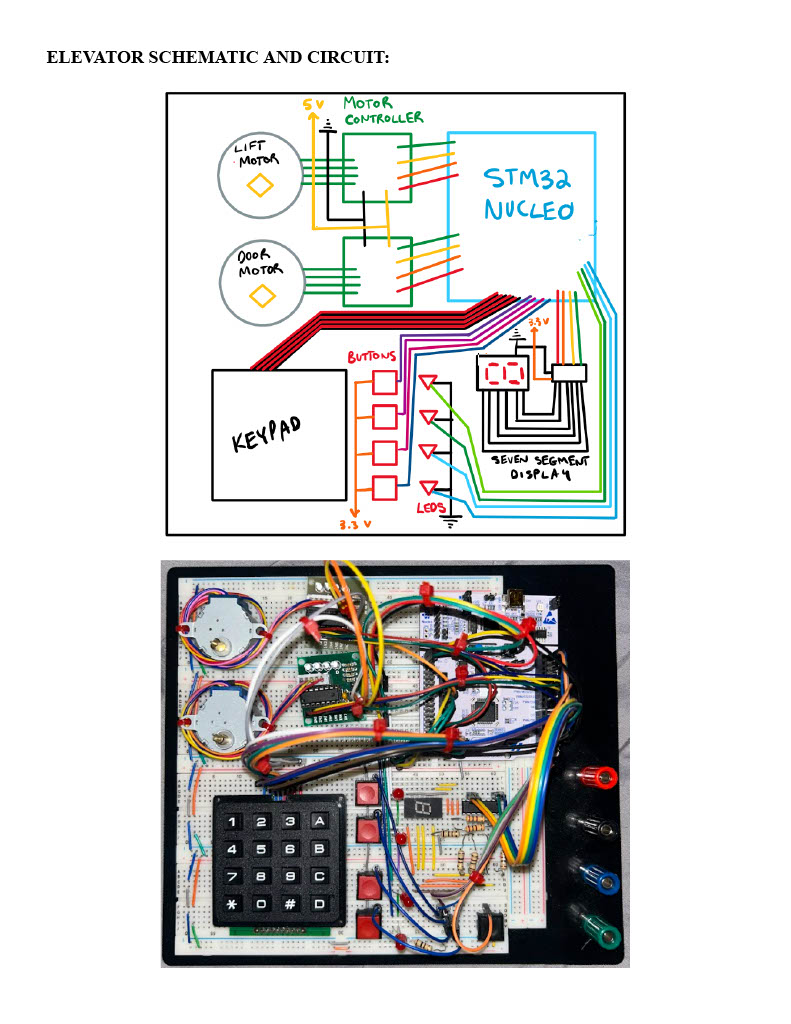 ELEVATOR SCHEMATIC AND CIRCUIT:
5 V
MOTOR
CONTROLLER
LIFT
MOTOR
STM32
NUCLEO
DOOR
MOTOR
3.3 V
BUTTONS
KEYPAD
SEVEN SEGMENT
DISPLAY
LEDS
3.3 V
1 2 3 A
4 5 6 B
7 8 9 C
* 0 # D